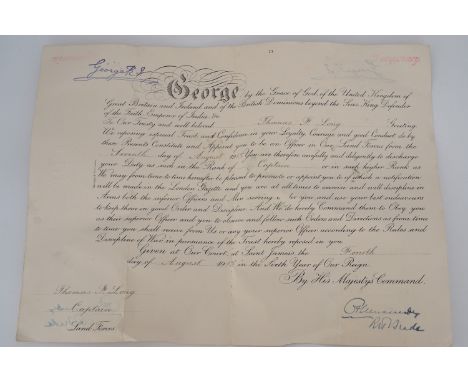 George R.I.
George by the Grace of God, of the United Kingdom of
Great Britain and Ireland and of the British Dominions beyond the Seas, King Defender
of the Faith, Emperor of India, &c.
To Our Trusty and well beloved Thomas W. Long Greeting.
We reposing especial Trust and Confidence in your Loyalty Courage and good Conduct do by
these Presents Constitute and Appoint you to be an Officer in Our Land Forces from the
Seventh day of August You are therefore carefully and diligently to discharge
your Duty as such in the Rank of Captain or in such higher Rank as
We may from time to time hereafter be pleased to promote or appoint you to of which a notification
will be made in the London Gazette and you are at all times to exercise and well discipline in
Arms both the inferior Officers and Men serving under you and use your best endeavours
to keep them in good Order and Discipline And We do hereby Command them to Obey you
as their superior Officer and you to observe and follow such Orders and Directions as from time
to time you shall receive from Us or any your superior Officer according to the Rules and
Discipline of War in pursuance of the Trust hereby reposed in you.
Given at Our Court, at Saint James's the Fourth
day of August in the Sixth Year of Our Reign
By His Majesty's Command.
Thomas W. Long
Captain
Land Forces